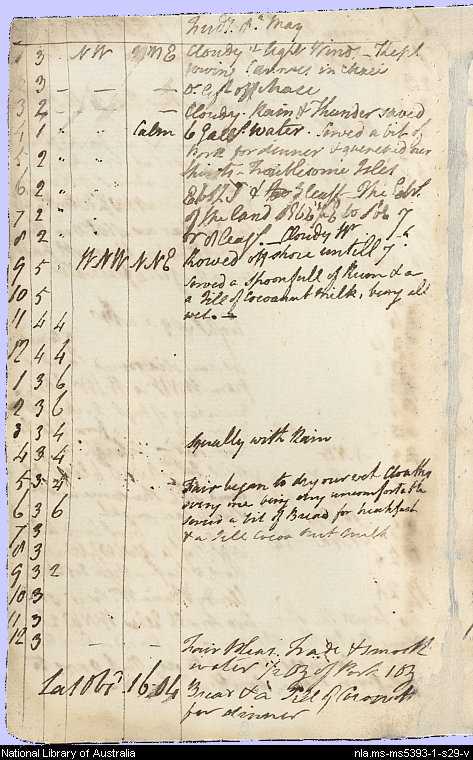 May
1 3 NW NNE Cloudy & light Winds _ Kept
rowing Cannoes in chace
3 — — Do left off chace
3 2 — Cloudy. Rain & Thunder saved
4 1 " Calm 6 Galls Water. Served a bit of
5 2 " Pork for dinner & quenched our
thirsts _ Troublesome Isles
6 2 " & 3 leags _ The Extr
7 2 " of the land to
8 2 " or 8 leags. _ Cloudy Wr
9 5 WNW NNE Rowed off shore untill 7.
10 5 served a spoonfull of Rum & a
a Gill of Cocoanut Milk, being all
11 4 4 wet. —
12 4 4
1 3 6
2 3 6
3 3 4 squally with Rain
4 3 4
5 3 4 Fair began to dry our wet Cloaths
every one being very uncomfortable
6 3 6 served a bit of Bread for breakfast
7 3 & a Gill Cocoa Nut Milk
8 3
9 3 2
10 3
11 3
12 3 — — Fair Pleast. Trade & smooth
water 1/2 Oz of Pork 1 Oz
Lat Obsd. 16.04 Bread & a Gill of Cocoanut
for dinner
National Library of Australia
nla.ms-ms5393-1-s29-v